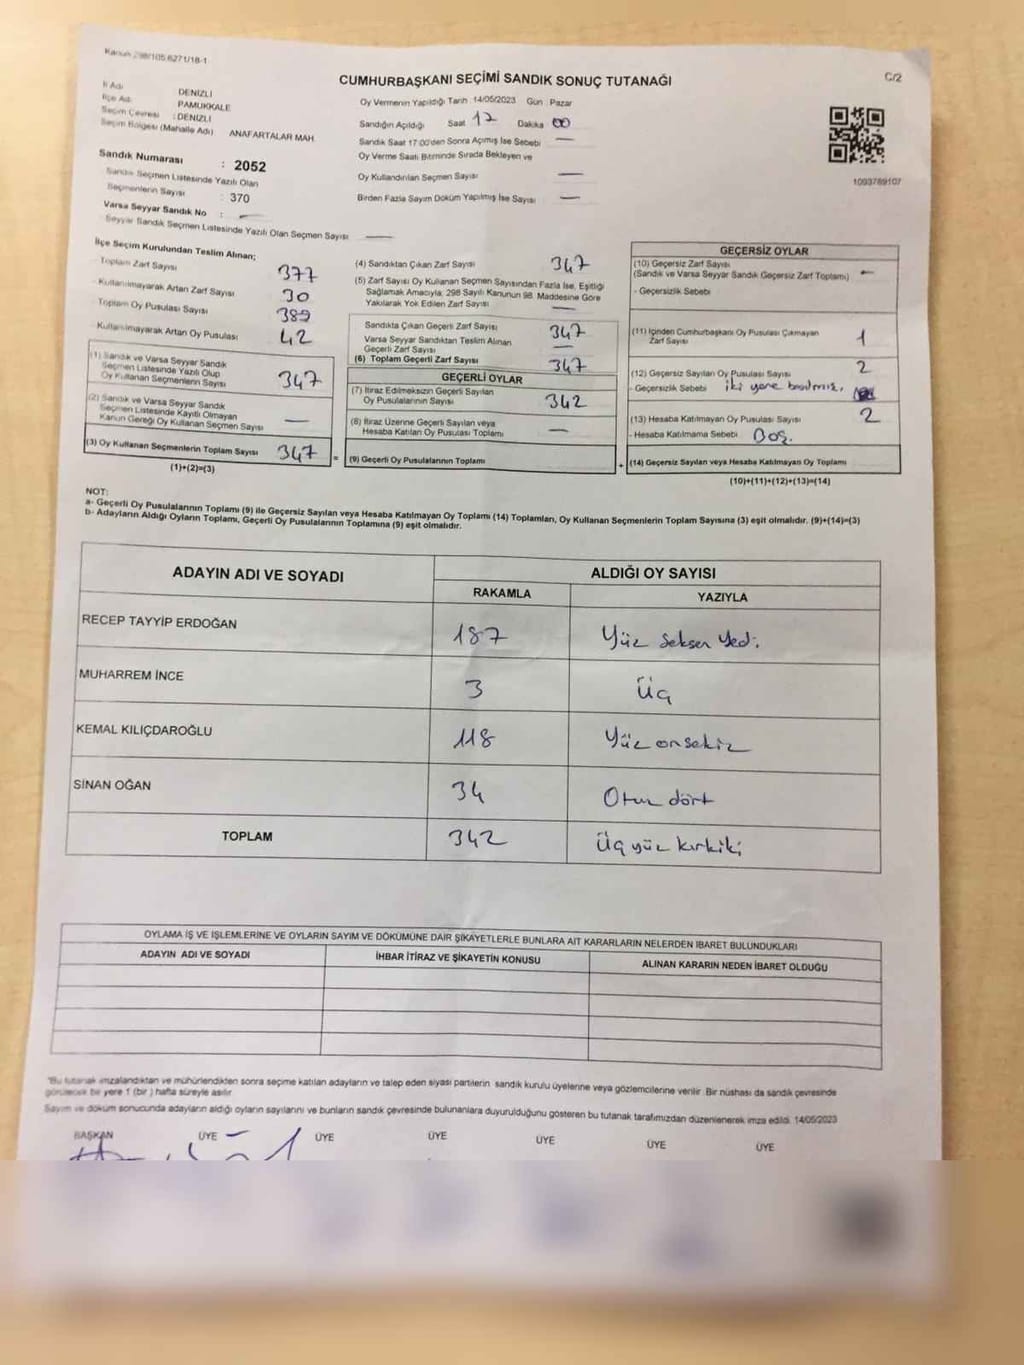 Kanun 298/105 6271/18-1
C/2
CUMHURBAŞKANI SEÇİMİ SANDIK SONUÇ TUTANAĞI
İl Adı DENİZLİ
İlçe Adı PAMUKKALE
Seçim Çevresi : DENİZLİ
Seçim Bölgesi (Mahalle Adı) ANAFARTALAR MAH
Sandık Numarası : 2052
Sandık Seçmen Listesinde Yazılı Olan
Seçmenlerin Sayısı : 370
Varsa Seyyar Sandık No : —
Seyyar Sandık Seçmen Listesinde Yazılı Olan Seçmen Sayısı —
Oy Vermenin Yapıldığı Tarih 14/05/2023 Gün : Pazar
Sandığın Açıldığı Saat 17 Dakika 00
Sandık Saat 17:00'den Sonra Açımış İse Sebebi —
Oy Verme Saati Bitiminde Sırada Bekleyen ve
Oy Kullandırılan Seçmen Sayısı —
Birden Fazla Sayım Döküm Yapılmış İse Sayısı —
1093789107
İlçe Seçim Kurulundan Teslim Alınan;
- Toplam Zarf Sayısı 377
- Kullanılmayarak Artan Zarf Sayısı 30
- Toplam Oy Pusulası Sayısı 389
- Kullanılmayarak Artan Oy Pusulası 42
(1) Sandık ve Varsa Seyyar Sandık
Seçmen Listesinde Yazılı Olup
Oy Kullanan Seçmenlerin Sayısı 347
(2) Sandık ve Varsa Seyyar Sandık
Seçmen Listesinde Kayıtlı Olmayan
Kanun Gereği Oy Kullanan Seçmen Sayısı —
(3) Oy Kullanan Seçmenlerin Toplam Sayısı 347 =
(1)+(2)=(3)
(4) Sandıktan Çıkan Zarf Sayısı 347
(5) Zarf Sayısı Oy Kullanan Seçmen Sayısından Fazla İse, Eşitliği
Sağlamak Amacıyla, 298 Sayılı Kanunun 98. Maddesine Göre
Yakılarak Yok Edilen Zarf Sayısı —
Sandıkta Çıkan Geçerli Zarf Sayısı 347
Varsa Seyyar Sandıktan Teslim Alınan
Geçerli Zarf Sayısı —
(6) Toplam Geçerli Zarf Sayısı 347
GEÇERLİ OYLAR
(7) İtiraz Edilmeksizin Geçerli Sayılan
Oy Pusulalarının Sayısı 342
(8) İtiraz Üzerine Geçerli Sayılan veya
Hesaba Katılan Oy Pusulası Toplamı —
(9) Geçerli Oy Pusulalarının Toplamı +
GEÇERSİZ OYLAR
(10) Geçersiz Zarf Sayısı
(Sandık ve Varsa Seyyar Sandık Geçersiz Zarf Toplamı) —
- Geçersizlik Sebebi
(11) İçinden Cumhurbaşkanı Oy Pusulası Çıkmayan
Zarf Sayısı 1
(12) Geçersiz Sayılan Oy Pusulası Sayısı 2
- Geçersizlik Sebebi iki yere basılmış.
(13) Hesaba Katılmayan Oy Pusulası Sayısı 2
- Hesaba Katılmama Sebebi Boş.
(14) Geçersiz Sayılan veya Hesaba Katılmayan Oy Toplamı
(10)+(11)+(12)+(13)=(14)
NOT:
a- Geçerli Oy Pusulalarının Toplamı (9) ile Geçersiz Sayılan veya Hesaba Katılmayan Oy Toplamı (14) Toplamları, Oy Kullanan Seçmenlerin Toplam Sayısına (3) eşit olmalıdır. (9)+(14)=(3)
b- Adayların Aldığı Oyların Toplamı, Geçerli Oy Pusulalarının Toplamına (9) eşit olmalıdır.
ADAYIN ADI VE SOYADI ALDIĞI OY SAYISI
RAKAMLA YAZIYLA
RECEP TAYYİP ERDOĞAN 187 Yüz seksen yedi.
MUHARREM İNCE 3 Üç
KEMAL KILIÇDAROĞLU 118 Yüz onsekiz
SİNAN OĞAN 34 Otuz dört
TOPLAM 342 Üçyüz kırkiki
OYLAMA İŞ VE İŞLEMLERİNE VE OYLARIN SAYIM VE DÖKÜMÜNE DAİR ŞİKAYETLERLE BUNLARA AİT KARARLARIN NELERDEN İBARET BULUNDUKLARI
ADAYIN ADI VE SOYADI İHBAR İTİRAZ VE ŞİKAYETİN KONUSU ALINAN KARARIN NEDEN İBARET OLDUĞU
"Bu tutanak imzalandıktan ve mühürlendikten sonra seçime katılan adayların ve talep eden siyasi partilerin sandık kurulu üyelerine veya gözlemcilerine verilir. Bir nüshası da sandık çevresinde
görülecek bir yere 1 (bir) hafta süreyle asılır.
Sayım ve döküm sonucunda adayların aldığı oyların sayılarını ve bunların sandık çevresinde bulunanlara duyurulduğunu gösteren bu tutanak tarafımızdan düzenlenerek imza edildi. 14/05/2023
BAŞKAN ÜYE ÜYE ÜYE ÜYE ÜYE ÜYE